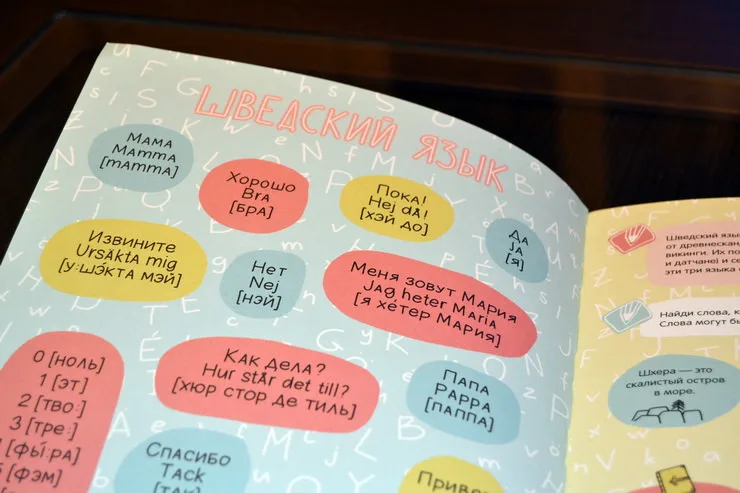 ШВЕДСКИЙ ЯЗЫК
Мама
Mamma
[мамма]
Хорошо
Bra
[БРА]
Пока!
Hej då!
[хэй до]
Да
Ja
[Я]
Извините
Ursäkta mig
[у:шэ́кта мэй]
Нет
Nej
[нэй]
Меня зовут Мария
Jag heter Maria
[я хе́тер Мария]
0 [ноль]
1 [эт]
2 [тво:]
3 [тре:]
4 [фы́:ра]
5 [фэм]
Как дела?
Hur står det till?
[хюр стор де тиль]
Папа
Pappa
[паппа]
Спасибо
Tack
Шведский
от
викинги. Их
и датчане) и
эти три языка
Найди слова,
Слова могут
Шхера — это
скалистый остров
в море.